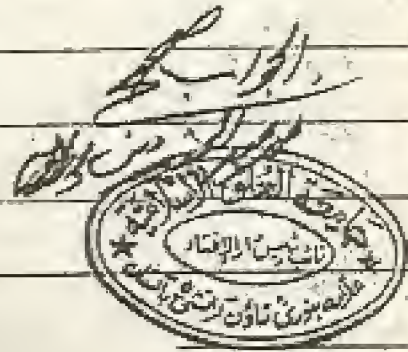 الجواب صحیح
جامعة العلوم الاسلامیة
نائب رئیس دارالافتاء
علامہ بنوری ٹاؤن کراچی پاکستان